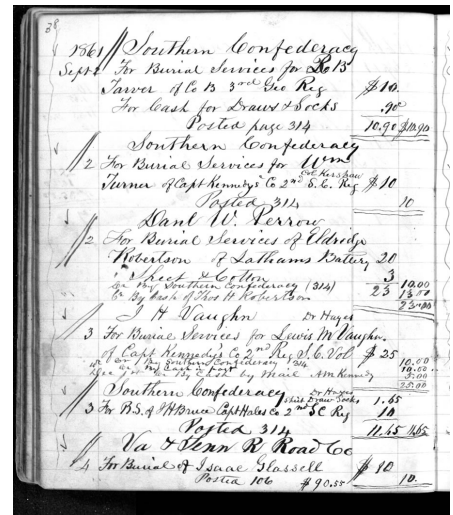 38
1861 Southern Confederacy
Sept 2 For Burial Services for Ro B
Tarver of Co B 3rd Geo Reg $10.
For Cash for Draws & Socks .90
Posted page 314 10.90 $10.90
Southern Confederacy
2 For Burial Services for Wm
Col Kershaw
Turner of Capt Kennedy's Co 2nd S.C. Reg $10
Posted 314 10
Danl W. Perrow
2 For Burial Services of Eldridge
Robertson of Lathams Battery 20
" Sheet & Cotton 3
By Southern Confederacy (314) 23 10.00
By Cash of Thos H Robertson 13.00
23.00
J H Vaughn Dr Hayes
3 For Burial Services for Lewis M Vaughn.
of Capt Kennedy's Co 2nd Reg S.C. Vol $25
By Southern Confederacy 314 10.00
By Cash 10.00
By Cash by mail AM Kennedy 5.00
25.00
Southern Confederacy Dr Hayes
Shirt Draw Socks 1.65
3 For B.S. of JH Bruce Capt Hales Co 2nd SC Reg 10
Posted 314 11.65 11.65
Va & Tenn R Road Co
4 For Burial of Isaac Glassell $10
Posted 106 $90.55 10.